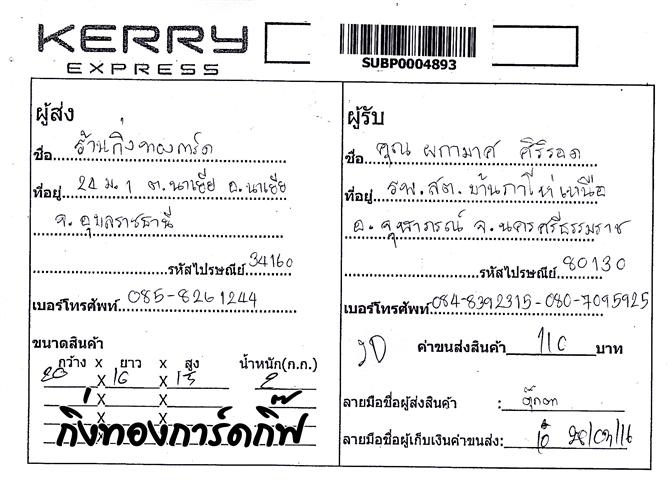 KERRY
EXPRESS
SUBP0004893
ผู้ส่ง
ชื่อ ร้านกิ่งทองการ์ด
ที่อยู่ 24 ม.1 ต.นาเยีย อ.นาเยีย
จ.อุบลราชธานี
รหัสไปรษณีย์ 34160
เบอร์โทรศัพท์ 085-8261244
ขนาดสินค้า
กว้าง x ยาว x สูง น้ำหนัก(ก.ก.)
20 X 16 X 15 2
X X
X X
กิ่งทองการ์ดกิ๊ฟ
ผู้รับ
ชื่อ คุณ ผกามาศ ศิริรอด
ที่อยู่ รพ.สต.บ้านกาโห่เหนือ
อ.จุฬาภรณ์ จ.นครศรีธรรมราช
รหัสไปรษณีย์ 80130
เบอร์โทรศัพท์ 084-8392315-080-7095925
ค่าขนส่งสินค้า 110 บาท
ลายมือชื่อผู้ส่งสินค้า : ตุ๊กตา
ลายมือชื่อผู้เก็บเงินค่าขนส่ง: